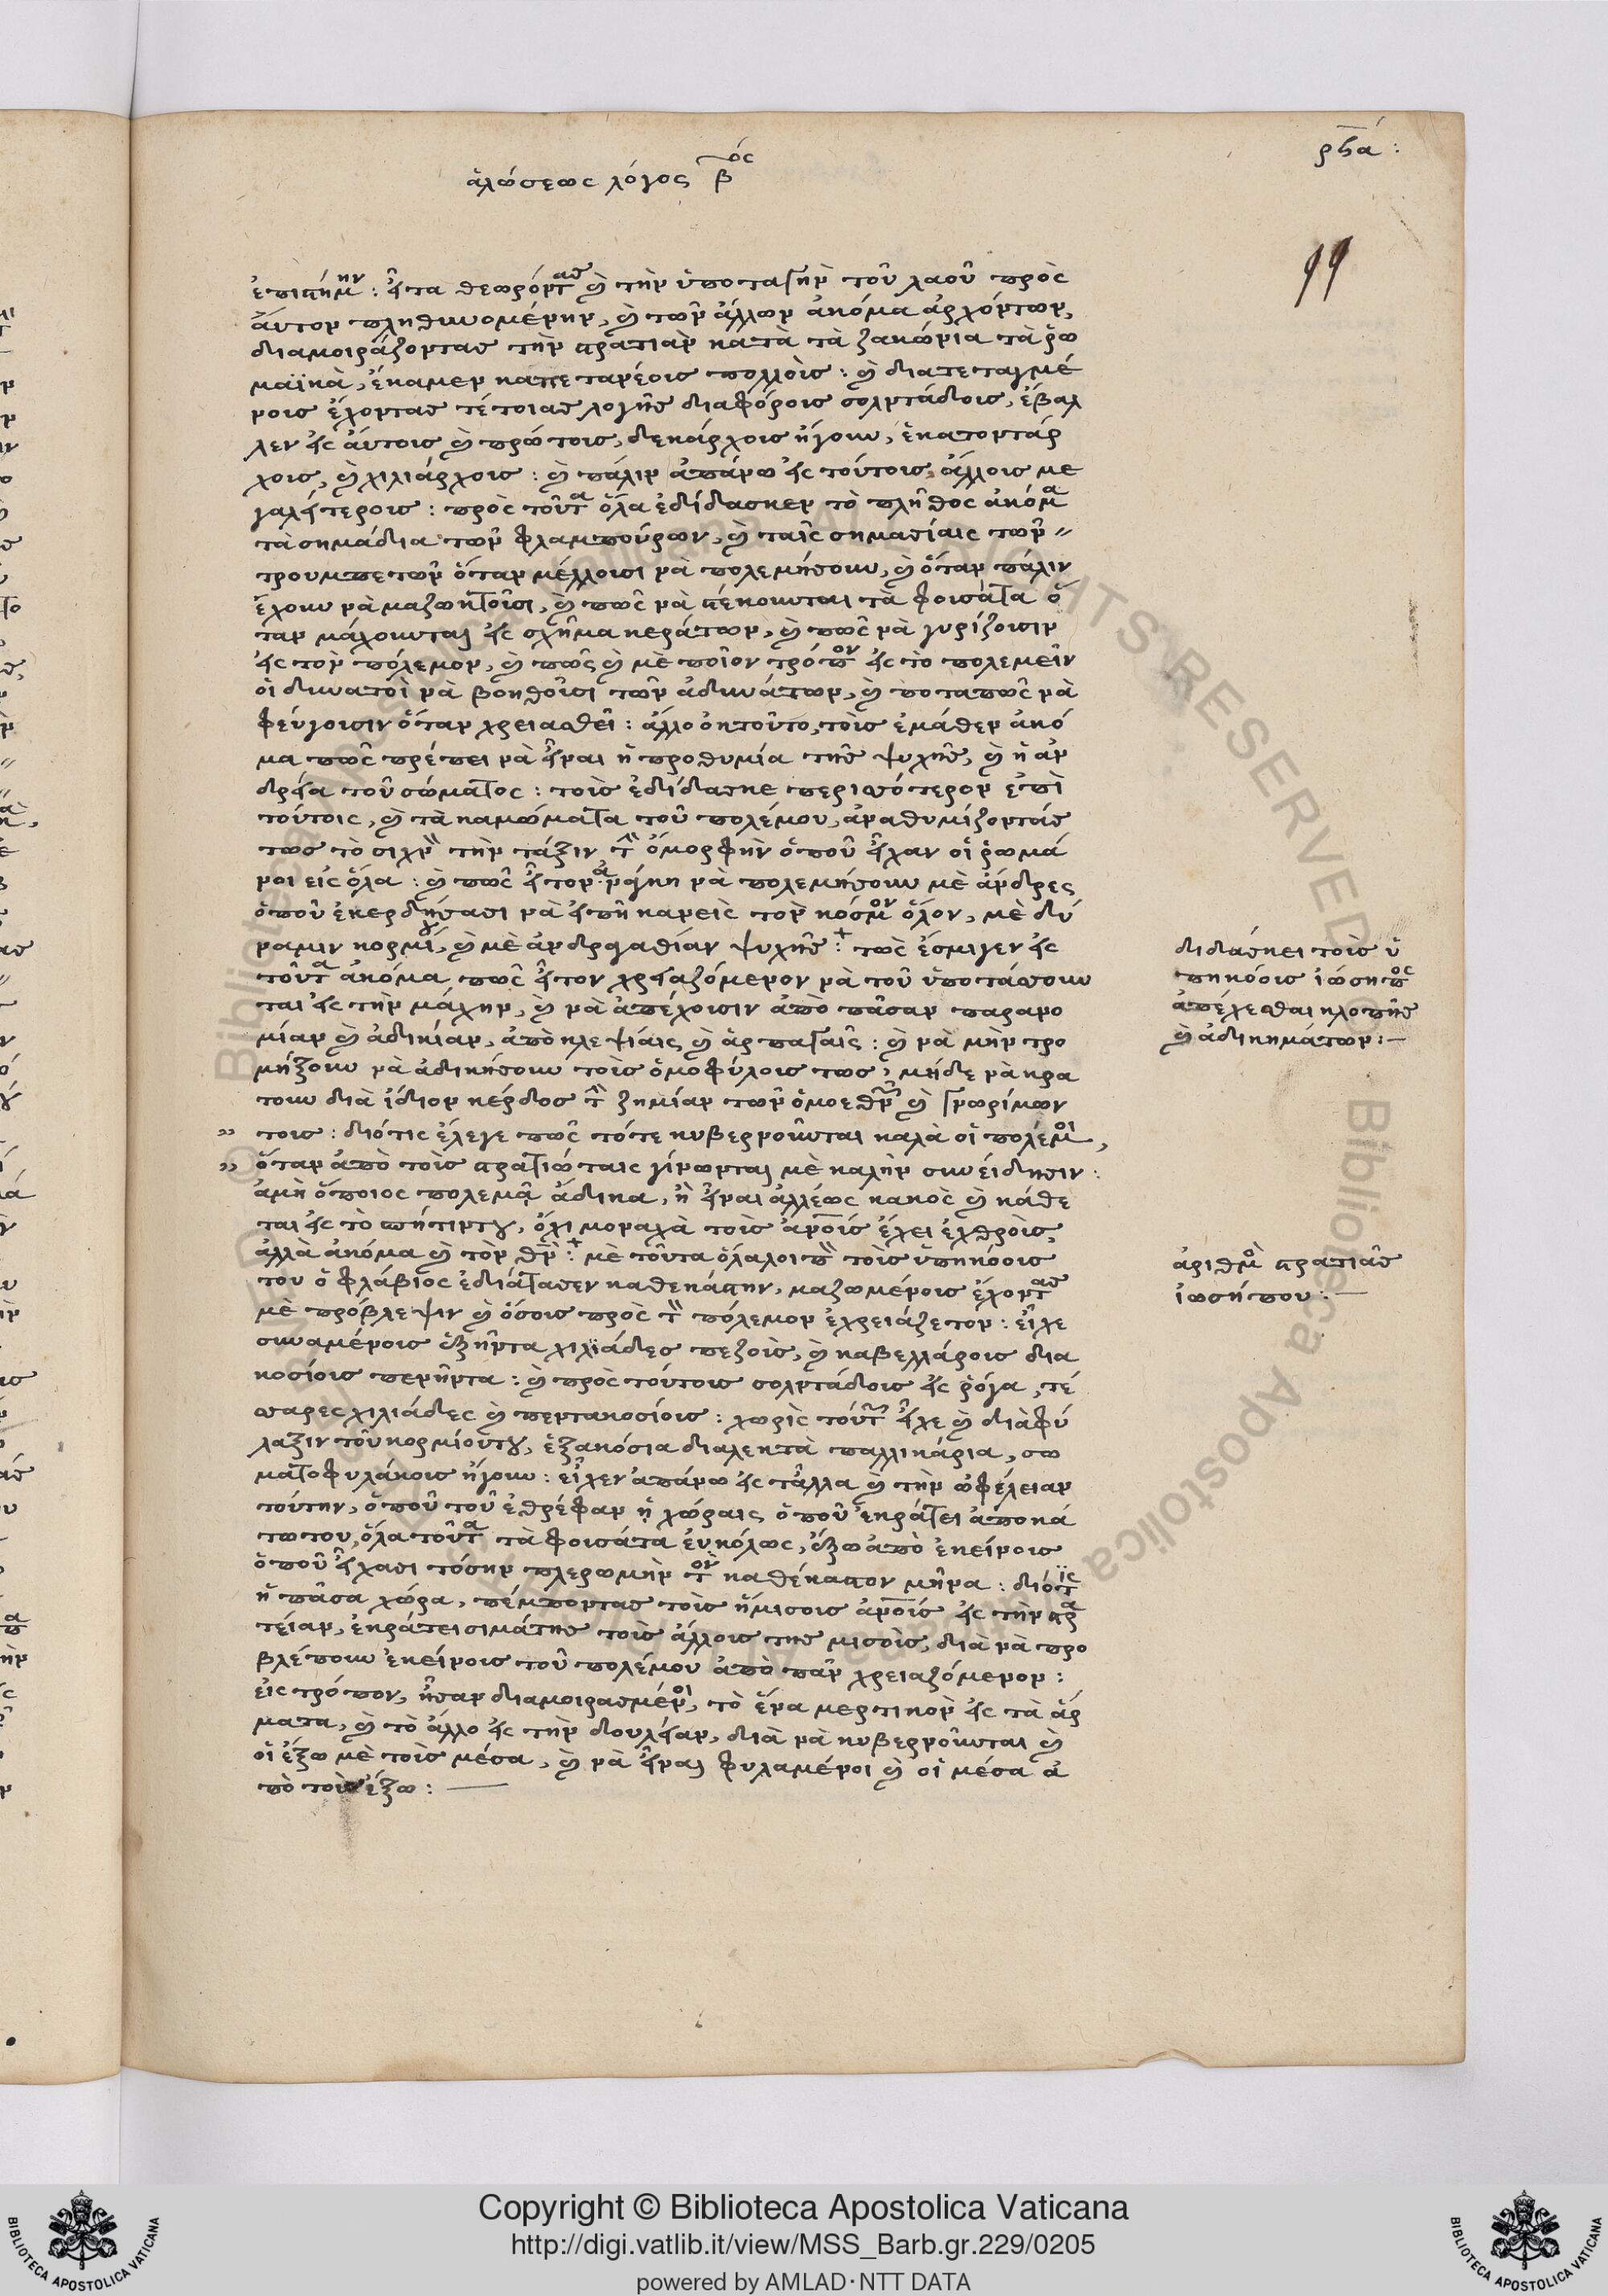 ἁλώσεως λόγος βος
ρϟα΄:
99
ἐπιστήμην: εἶτα θεωρόντας καὶ τὴν ὑποταγὴν τοῦ λαοῦ πρὸς
ἄυτον πληθυνομένην, καὶ τῶν ἄλλων ἀκόμα ἀρχόντων,
διαμοιράζοντας τὴν στρατιὰν κατὰ τὰ ζακώνια τὰ ῥω
μαϊκὰ, ἔκαμεν καπετανέοις πολλοὶς: καὶ διατεταγμέ
νοις ἔχοντας τέτοιας λογῆς διαφόροις σολντάδοις, ἔβαλ
λεν εἰς ἄυτοις καὶ πρώτοις, δεκάρχοις ἤγουν, ἑκατοντάρ
χοις, καὶ χιλιάρχοις: καὶ πάλιν ἀπάνω εἰς τούτοις ἄλλοις με
γαλήτεροις: πρὸς τοῦτα ὅλα ἐδίδασκεν τὸ πλῆθος ἀκόμα
τὰ σημάδια τῶν φλαμπούρων, καὶ ταῖς σημασίαις τῶν
τρουμπετῶν ὅταν μέλλοισι νὰ πολεμήσουν, καὶ ὅταν πάλιν
ἔχουν νὰ μαζωκτοῦσι, καὶ πῶς νὰ στέκουνται τὰ φοισάτα ὅ
ταν μάχουνται εἰς σχῆμα κεράτων, καὶ πῶς νὰ γυρίζοισιν
εἰς τὸν πόλεμον, καὶ πῶς καὶ μὲ ποῖον τρόπον εἰς τὸ πολεμεῖν
οἱ δυνατοὶ νὰ βοηθοῦσι τῶν ἀδυνάτων, καὶ ποταπῶς νὰ
φεύγοισιν ὅταν χρειασθεῖ: ἄλλο ὀκτοῦτο, τοὶς ἐμάθεν ἀκό
μα πῶς πρέπει νὰ εἶναι ἡ προθυμία τῆς ψυχῆς, καὶ ἡ ἀν
δρεία τοῦ σώματος: τοὶς ἐδίδασκε περισσότερον ἐπὶ
τούτοις, καὶ τὰ καμώματα τοῦ πολέμου, ἀναθυμίζοντάς
τως τὸ συχνὸν τὴν τάξιν τὴν ὄμορφὴν ὅπου εἶχαν οἱ ῥωμά
νοι εἰς ὅλα: καὶ πῶς εἶτον ἀνάγκη νὰ πολεμήσουν μὲ ἄνδρες
ὁποῦ ἐκερδήσασι νὰ εἰπῆ κανεὶς τὸν κόσμον ὅλον, μὲ δύ
ναμιν κορμίου, καὶ μὲ ἀνδραγαθίαν ψυχῆς:+ τῶς ἔσμιγεν εἰς
τοῦτα ἀκόμα, πῶς εἶτον χρειαζόμενον νὰ τοῦ ὑποτάσσουν
ται εἰς τὴν μάχην, καὶ νὰ ἀπέχοισιν ἀπὸ πᾶσαν παρανο
μίαν καὶ ἀδικίαν, ἀπὸ κλεψίαις καὶ ἁρπαγαῖς: καὶ νὰ μὴν τρο
μήξουν νὰ ἀδικήσουν τοὶς ὁμοφύλοις τως, μήδε νὰ κρα
τουν διὰ ἴδιον κέρδος τὴν ζημίαν τῶν ὁμοεθνῶν καὶ γνωρίμων
τοις: διότις ἔλεγε πῶς τότε κυβερνοῦνται καλὰ οἱ πολέμοι,
ὅταν ἀπὸ τοὶς στρατιώταις γίνωνται μὲ καλὴν συνείδησιν:
ἀμὴ ὅποιος πολεμᾶ ἄδικα, ἢ εἶναι ἀλλέως κακὸς καὶ κάθε
ται εἰς τὸ σπήτιντου, ὄχι μοναχὰ τοὶς ἀνοὶς ἔχει ἐχθροὶς,
ἀλλὰ ἀκόμα καὶ τὸν θεὸν:+ μὲ τοῦτα ὅλα λοιπὸν τοὶς ὑπηκόοις
του ὁ φλάβιος ἐδιάτασεν καθεκάστην, μαζωμένοις ἔχοντας
μὲ πρόβλεψιν καὶ ὅσοις πρὸς τὸν πόλεμον ἐχρειάζετον: εἶχε
συναμένοις ἑξῆντα χιλιάδες πεζοὶς, καὶ καβελλάροις δια
κοσίοις πενῆντα: καὶ πρὸς τούτοις σολντάδοις εἰς ῥόγα, τέ
σσαρες χιλιάδες καὶ πεντακοσίοις: χωρὶς τούτων εἶχε καὶ διὰ φύ
λαξιν τοῦ κορμίουτου, ἑξακόσια διαλεκτὰ παλλικάρια, σω
ματοφυλάκοις ἤγουν: εἶχεν ἀπάνω εἰς τἄλλα καὶ τὴν ὠφέλειαν
τούτην, ὁποῦ τοῦ ἐθρέφαν ἡ χώραις ὁποῦ ἐκράτει ἀποκά
τωτου, ὅλα τοῦτα τὰ φοισάτα ἐυκόλως, ἔξω ἀπὸ ἐκείνοις
ὁποῦ εἴχασι τόσην πλερωμὴν τὸν καθέκαστον μῆνα: διότις
ἡ πᾶσα χώρα, πέμποντας τοὶς ἥμισοις ἀνοὶς εἰς τὴν στρα
τείαν, ἐκράτει σιμάτης τοὶς ἄλλοις της μισοὶς, διὰ νὰ προ
βλέπουν ἐκείνοις τοῦ πολέμου ἀπὸ πᾶν χρειαζόμενον:
εἰς τρόπον, ἦσαν διαμοιρασμένοι, τὸ ἕνα μερτικὸν εἰς τὰ ἅρ
ματα, καὶ τὸ ἄλλο εἰς τὴν δουλείαν, διὰ νὰ κυβερνοῦνται καὶ
οἱ ἔξω μὲ τοὶς μέσα, καὶ νὰ εἶναι φυλαμένοι καὶ οἱ μέσα ἀ
πὸ τοὶς ἔξω:
διδάσκει τοὶς ὑ
πηκόοις ἰώσηπος
ἀπέχεσθαι κλοπῆς
καὶ ἀδικημάτων:
ἀριθμὸς στρατιᾶς
ἰωσήπου:
Copyright © Biblioteca Apostolica Vaticana
http://digi.vatlib.it/view/MSS_Barb.gr.229/0205
powered by AMLAD·NTT DATA
BIBLIOTECA APOSTOLICA VATICANA
BIBLIOTECA APOSTOLICA VATICANA